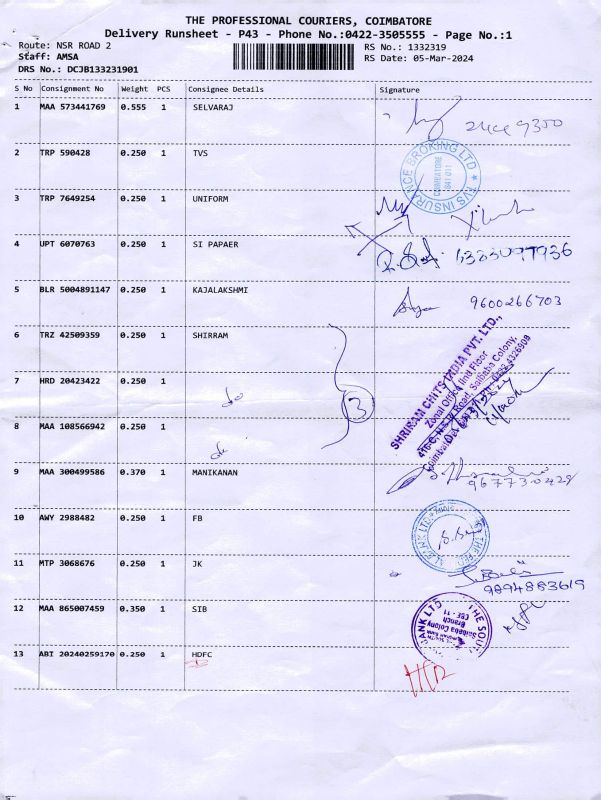 THE PROFESSIONAL COURIERS, COIMBATORE
Delivery Runsheet - P43 - Phone No.:0422-3505555 - Page No.:1
Route: NSR ROAD 2 RS No.: 1332319
Staff: AMSA RS Date: 05-Mar-2024
DRS No.: DCJB133231901
S No Consignment No Weight PCS Consignee Details Signature
1 MAA 573441769 0.555 1 SELVARAJ
2 TRP 590428 0.250 1 TVS
TVS INSURANCE BROKING LTD
COIMBATORE
641 011
3 TRP 7649254 0.250 1 UNIFORM
4 UPT 6070763 0.250 1 SI PAPAER
5 BLR 5004891147 0.250 1 KAJALAKSHMI 9600266703
6 TRZ 42509359 0.250 1 SHIRRAM
SHRIRAM CHITS INDIA PVT. LTD.,
Zonal Office IInd Floor
Road, Saibaba Colony,
7 HRD 20423422 0.250 1 do
3
8 MAA 108566942 0.250 1 do
9 MAA 300499586 0.370 1 MANIKANAN
10 AWY 2988482 0.250 1 FB
11 MTP 3068676 0.250 1 JK 9894883619
12 MAA 865007459 0.350 1 SIB
THE SOUTH
BANK LTD
Saibaba Colony
Branch
CBE - 11
13 ABI 20240259170 0.250 1 HDFC